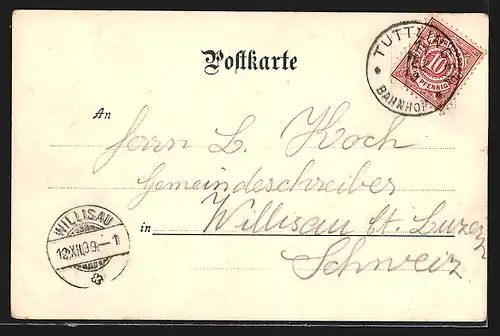 Postkarte
TUTTLINGEN
BAHNHOF
10
PFENNIG
An
Herrn L. Koch
Gemeindeschreiber
in Willisau Ct. Luzern
Schweiz
WILLISAU
12.XII.99.–1